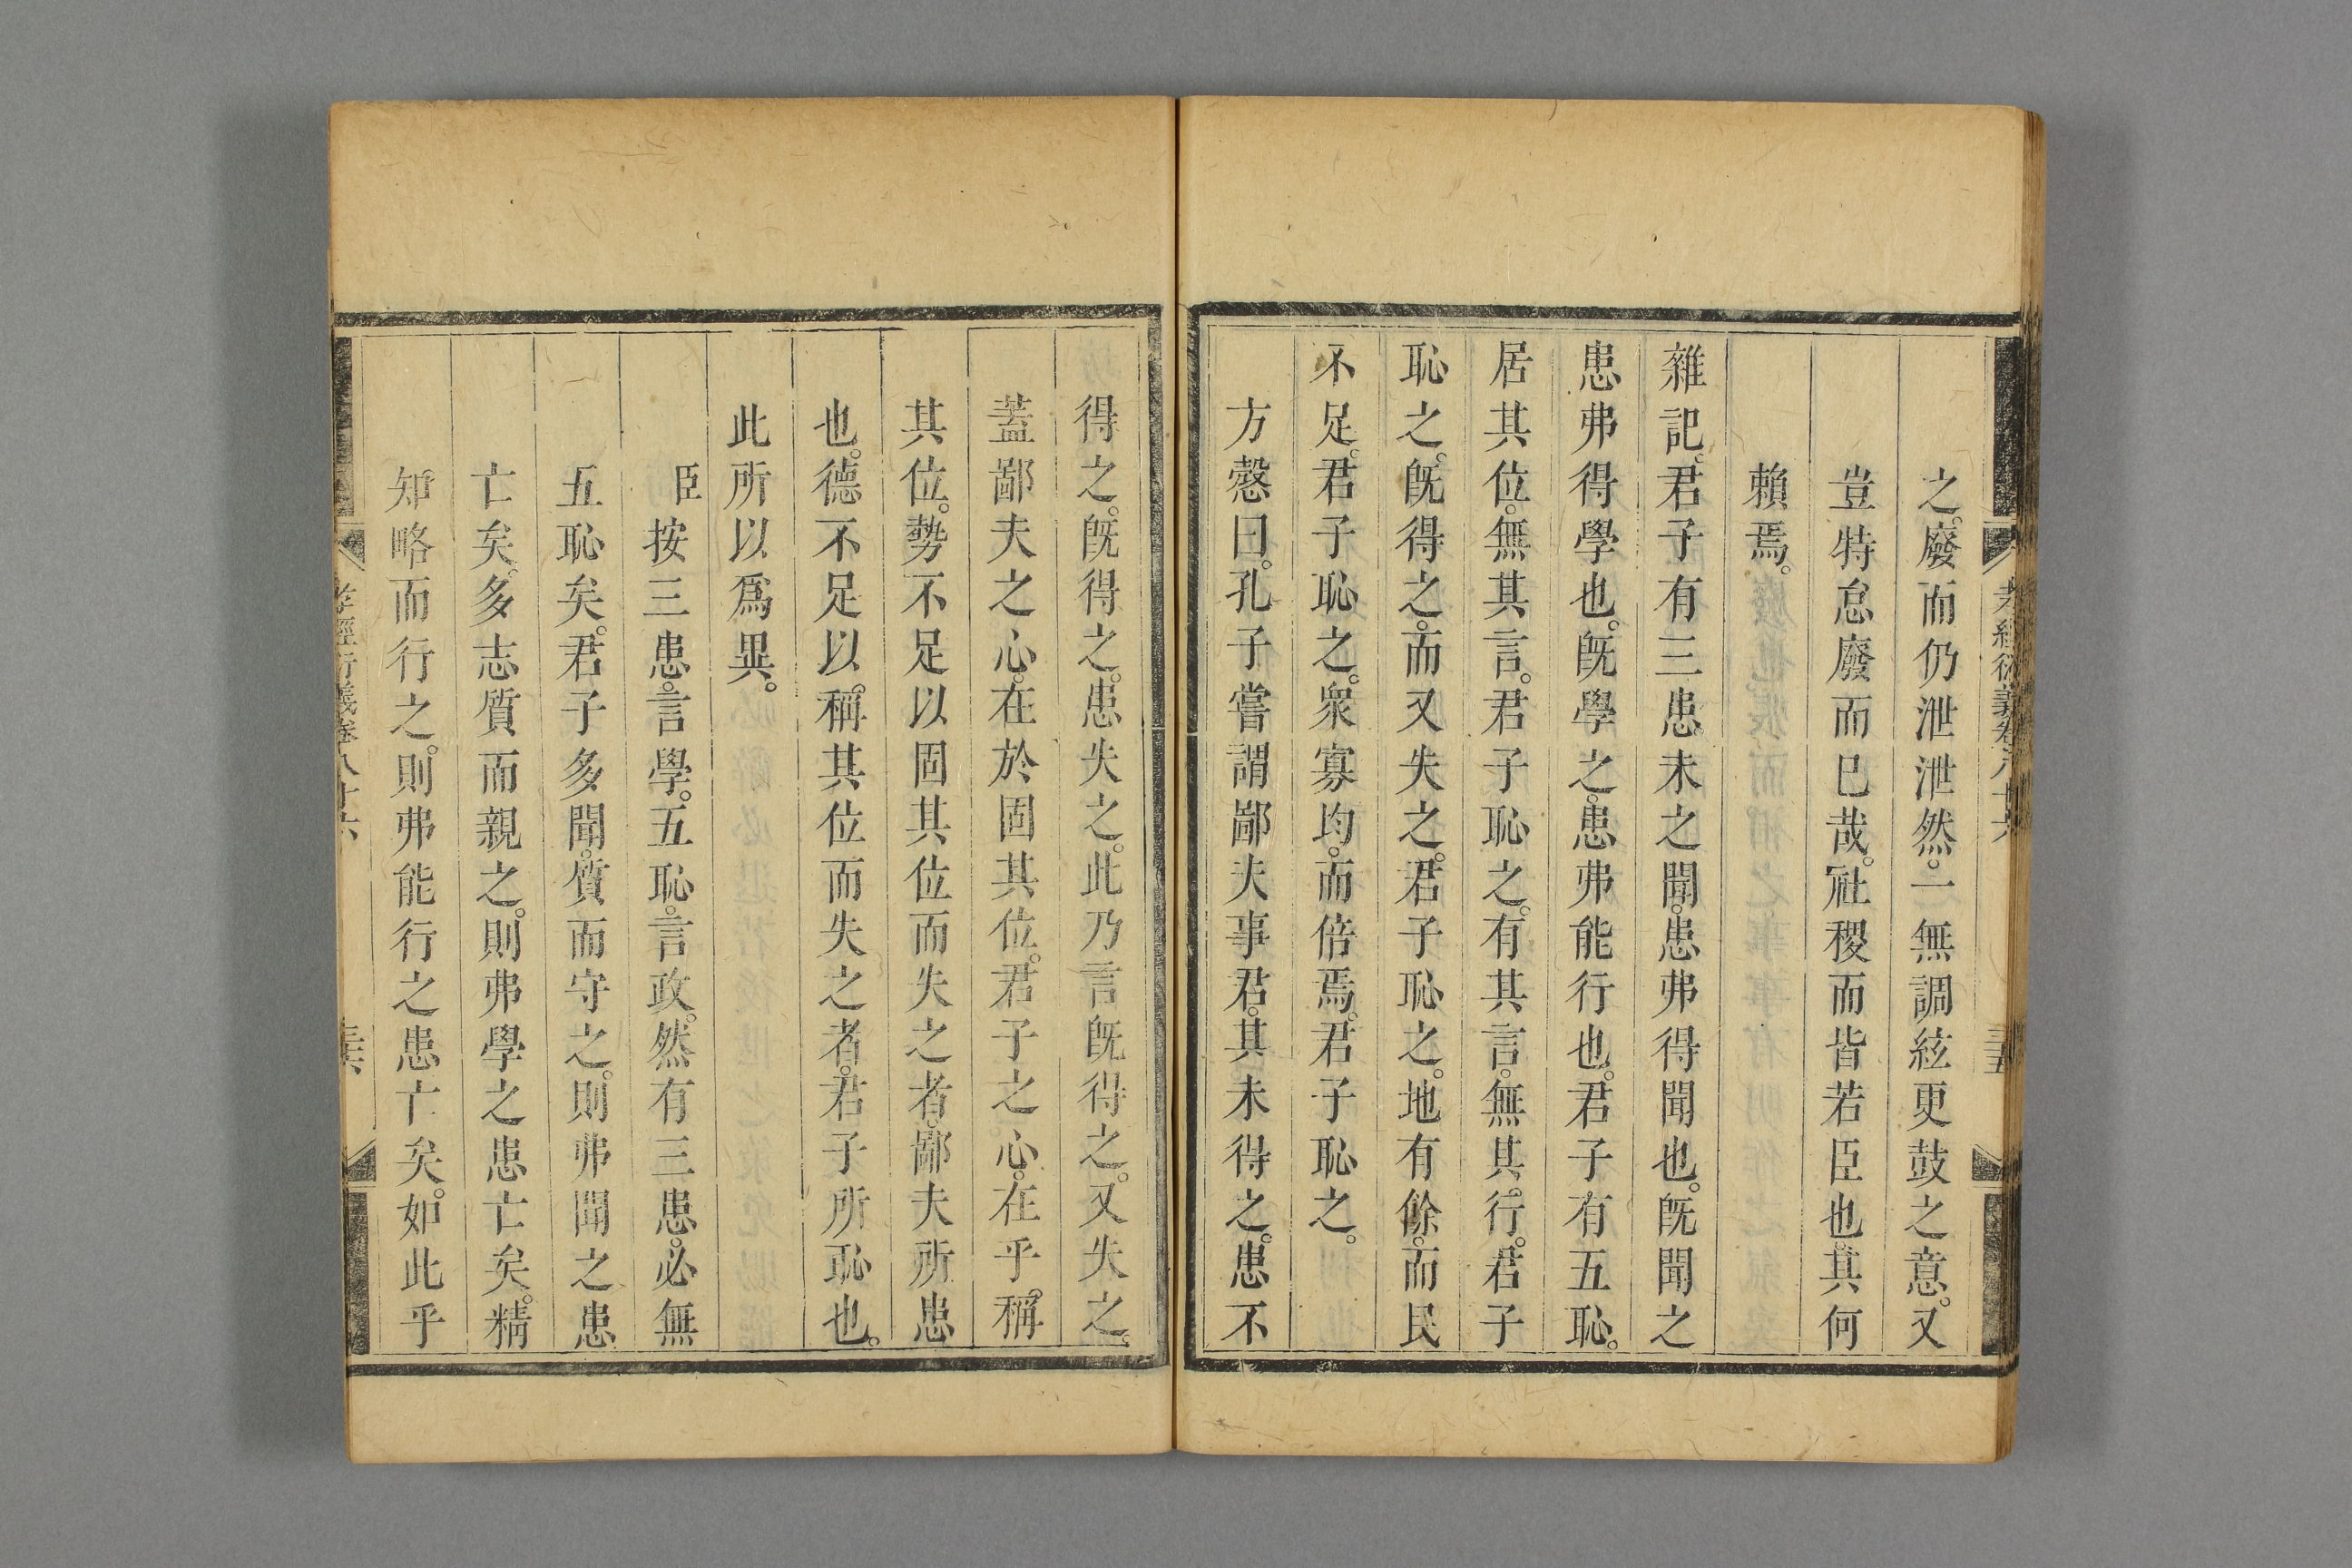 之。廢而仍泄泄然。一無調絃更鼓之意。又
豈特怠廢而已哉。社稷而皆若臣也。其何
賴焉。
雜記。君子有三患。未之聞。患弗得聞也。旣聞之
患弗得學也。旣學之。患弗能行也。君子有五恥。
居其位。無其言。君子恥之。有其言。無其行。君子
恥之。旣得之。而又失之。君子恥之。地有餘。而民
不足。君子恥之。衆寡均。而倍焉。君子恥之。
方慤曰。孔子嘗謂鄙夫事君。其未得之。患不
得之。旣得之。患失之。此乃言旣得之。又失之。
蓋鄙夫之心。在於固其位。君子之心。在乎。稱
其位。勢不足以固其位而失之者。鄙夫所患
也。德不足以。稱其位而失之者。君子所恥也。
此所以爲異。
臣按三患。言學。五恥。言政。然有三患。必無
五恥矣。君子多聞。質而守之。則弗聞之患
亡矣。多志質而親之。則弗學之患亡矣。精
知略而行之。則弗能行之患亡矣。如此乎
孝經衍義卷八十六
三十五
孝經衍義卷八十六
三十六